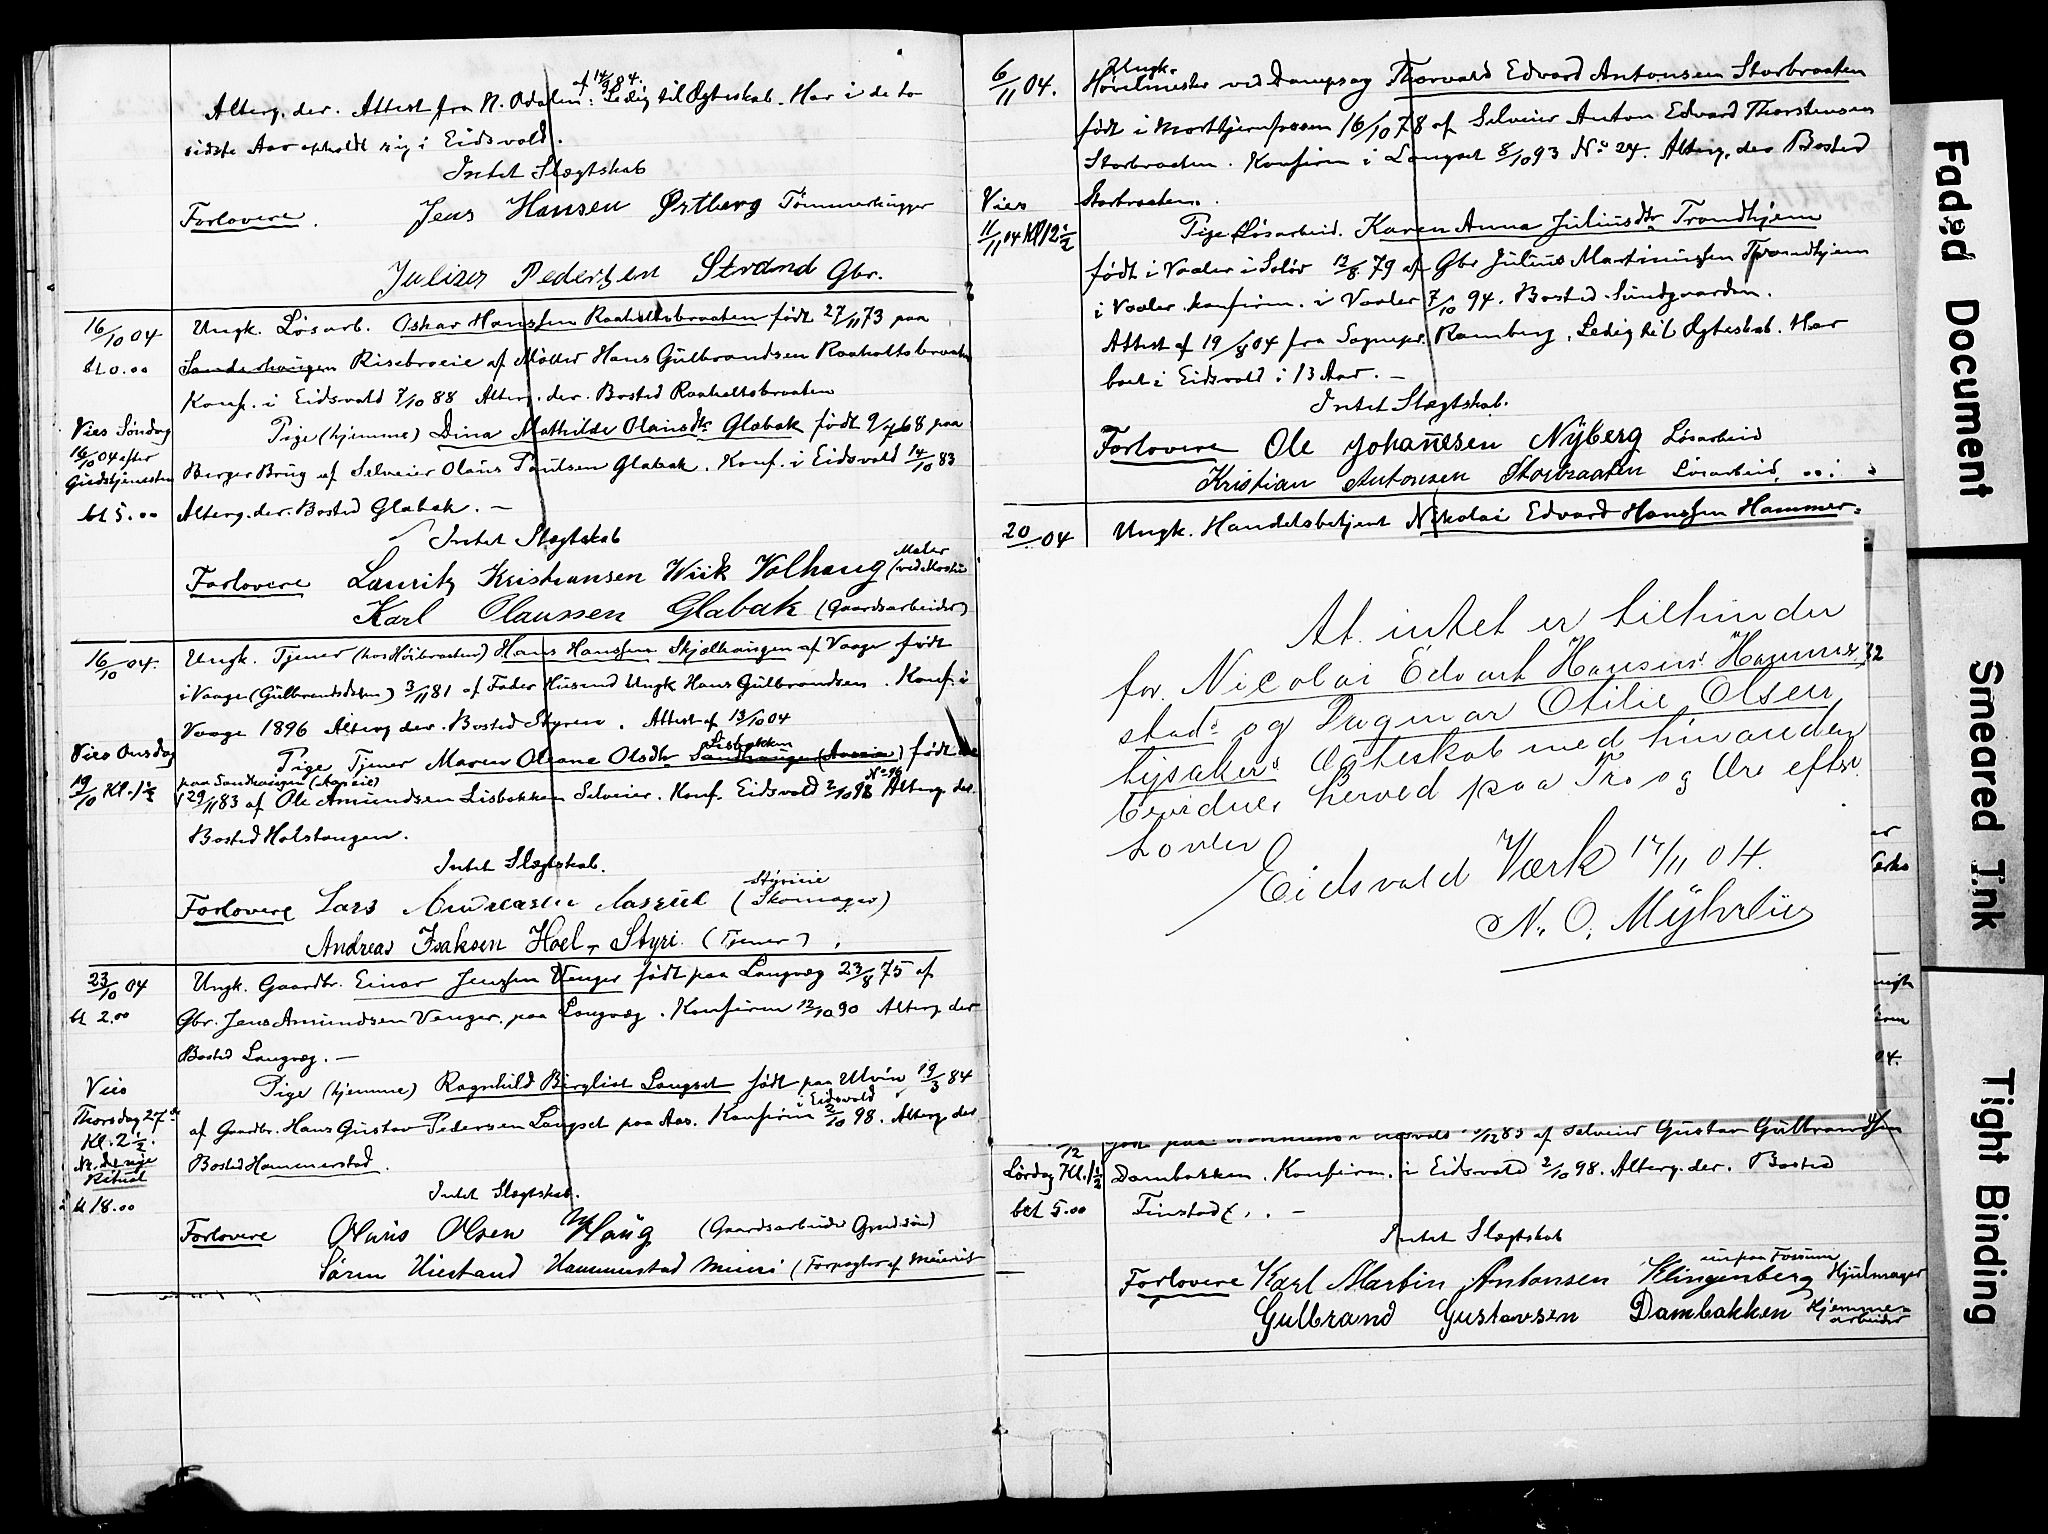 af 14/3 84.
Alterg. der. Attest fra N. Odalen: Ledig til Ægteskab. Har i de to
sidste Aar opholdt sig i Eidsvold.
Intet Slægtskab
Forlovere. Jens Hansen Østberg Tømmerhugger
Julius Pedersen Strand Gbr.
16/10 04 Ungk. Løsarb. Oskar Hanssen Raaholtsbraaten født 27/11 73 paa
bt 0.00 Sanderhaugen Risebroeie af Møller Hans Gulbrandsen Raaholtsbraaten
Konf. i Eidsvold 7/10 88 Alterg. der. Bosted Raaholtsbraaten
Vies Søndag Pige (hjemme) Dina Mathilde Olausdtr Glabak født 9/7 68 paa
16/10 04 efter Berger Brug af Selveier Olaus Paulsen Glabak. Konf. i Eidsvold 14/10 83
Gudstjenesten
bt 5.00 Alterg. der. Bosted Glabak. —
Intet Slægtskab
Forlovere Lauritz Kristiansen Wiik Volhaug (Maler
Karl Olaussen Glabak (Gaardsarbeider)
16/10 04. Ungk. Tjener (hos Høibraaten) Hans Hanssen Skjælhaugen af Vaage født
i Vaage (Gulbrandsdalen) 3/11 81 af Fader Husmd Ungk Hans Gulbrandsen. Konf. i
Vaage 1896 Alterg der. Bosted Styren. Attest af 13/10 04
Lisbakken
Vies Onsdag Pige Tjener Maren Oleane Olsdtr Sandhaugen (Aaseie) født
paa Sandhaugen (Aaseie) No 96
19/10 Kl. 1 1/2 29/11 83 af Ole Amundsen Lisbakken Selveier. Konf. Eidsvold 2/10 98 Alterg. der.
Bosted Holstangen.
Intet Slægtskab.
Forlovere Lars (Styrieie
Skomager)
Andreas Isaksen Hoel, Styri. (Tjener)
23/10 04 Ungk. Gaardbr. Einar Jenssen Venger født paa Langvæg 23/8 75 af
bt 2.00 Gbr. Jens Amundsen Venger paa Langvæg. Konfirm 12/10 90 Alterg. der
Bosted Langvæg. —
Vies Pige (hjemme) Ragnhild Birgliot Langset født paa Ulvin 19/3 84
i Eidsvold
Thorsdag 27de af Gaardbr. Hans Gustav Pedersen Langset paa Aas. Konfirm 2/10 98. Alterg. der
Kl. 2 1/2.
Nr. de nye Bosted Hammerstad.
Ritual
bt 18.00 Intet Slægtskab.
Forlovere Olaus Olsen Haug (Gaardsarbeider
Søren Hiestand Hammerstad Meieri (Forpagter af Meieriet
6/11 04. Ungk.
Høvelmester ved Dampsag Thorvald Edvard Antonsen Storbraaten
født i Morttjernfossen 16/10 78 af Selveier Anton Edvard Thorstensen
Storbraaten. Konfirm i Langset 8/10 93 No 24. Alterg. der Bosted
Vies Storbraaten.
11/11 04 Kl 12 1/2 Pige Løsarbeid. Karen Anna Juliusdtr Trondhjem
født i Vaaler i Solør 12/8 79 af Gbr Julius Martinussen Trondhjem
i Vaaler konfirm. i Vaaler 7/10 94. Bosted Sundgaarden.
Attest af 19/8 04 fra Sognepr. Ramberg. Ledig til Ægteskab. Har
boet i Eidsvold i 13 Aar. —
Intet Slægtskab.
Forlovere Ole Johannesen Nyberg Løsarbeid
Kristian Antonsen Storbraaten Løsarbeid.
20/ 04 Ungk. Handelsbetjent Nikolai Edvard Hanssen Hammer=
At intet er tilhinder
for Nicolai Edvart Hansens Hammer
stads og Dagmar Otilie Olsen
Lysakers Ægteskab med hinanden
bevidnes herved paa Tro og Ære efter
Loven
Eidsvold Værk 17/11 04.
N. O. Myhrlie
12 af Selveier Gustav Gulbrandsen
Lørdag Kl. 1 1/2 Dambakken. Konfirm. i Eidsvold 2/10 98. Alterg. der. Bosted
bet 5.00 Finstad. —
Intet Slægtskab
Forlovere Karl Martin Antonsen Klingenberg Hjulmager
Gulbrand Gustavsen Dambakken Hjemme=
arbeider
Faded Document
Smeared Ink
Tight Binding